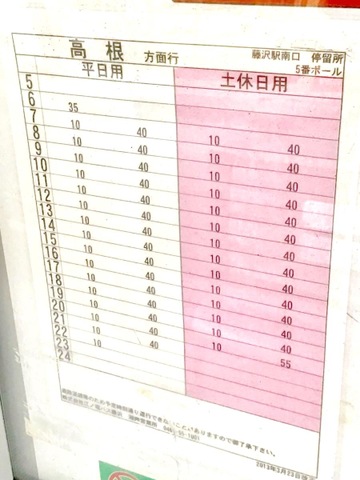 高根 方面行 藤沢駅南口 停留所
5番ポール
平日用 土休日用
5
6 35
7 10 40
8 10 40 10 40
9 10 40 10 40
10 10 40 10 40
11 10 40 10 40
12 10 40 10 40
13 10 40 10 40
14 10 40 10 40
15 10 40 10 40
16 10 40 10 40
17 10 40 10 40
18 10 40 10 40
19 10 40 10 40
20 10 40 10 40
21 10 40 10 40
22 10 40 10 40
23 55
24
道路混雑のため予定時刻通り運行できないことがありますので御了承下さい。
2013年3月23日改正